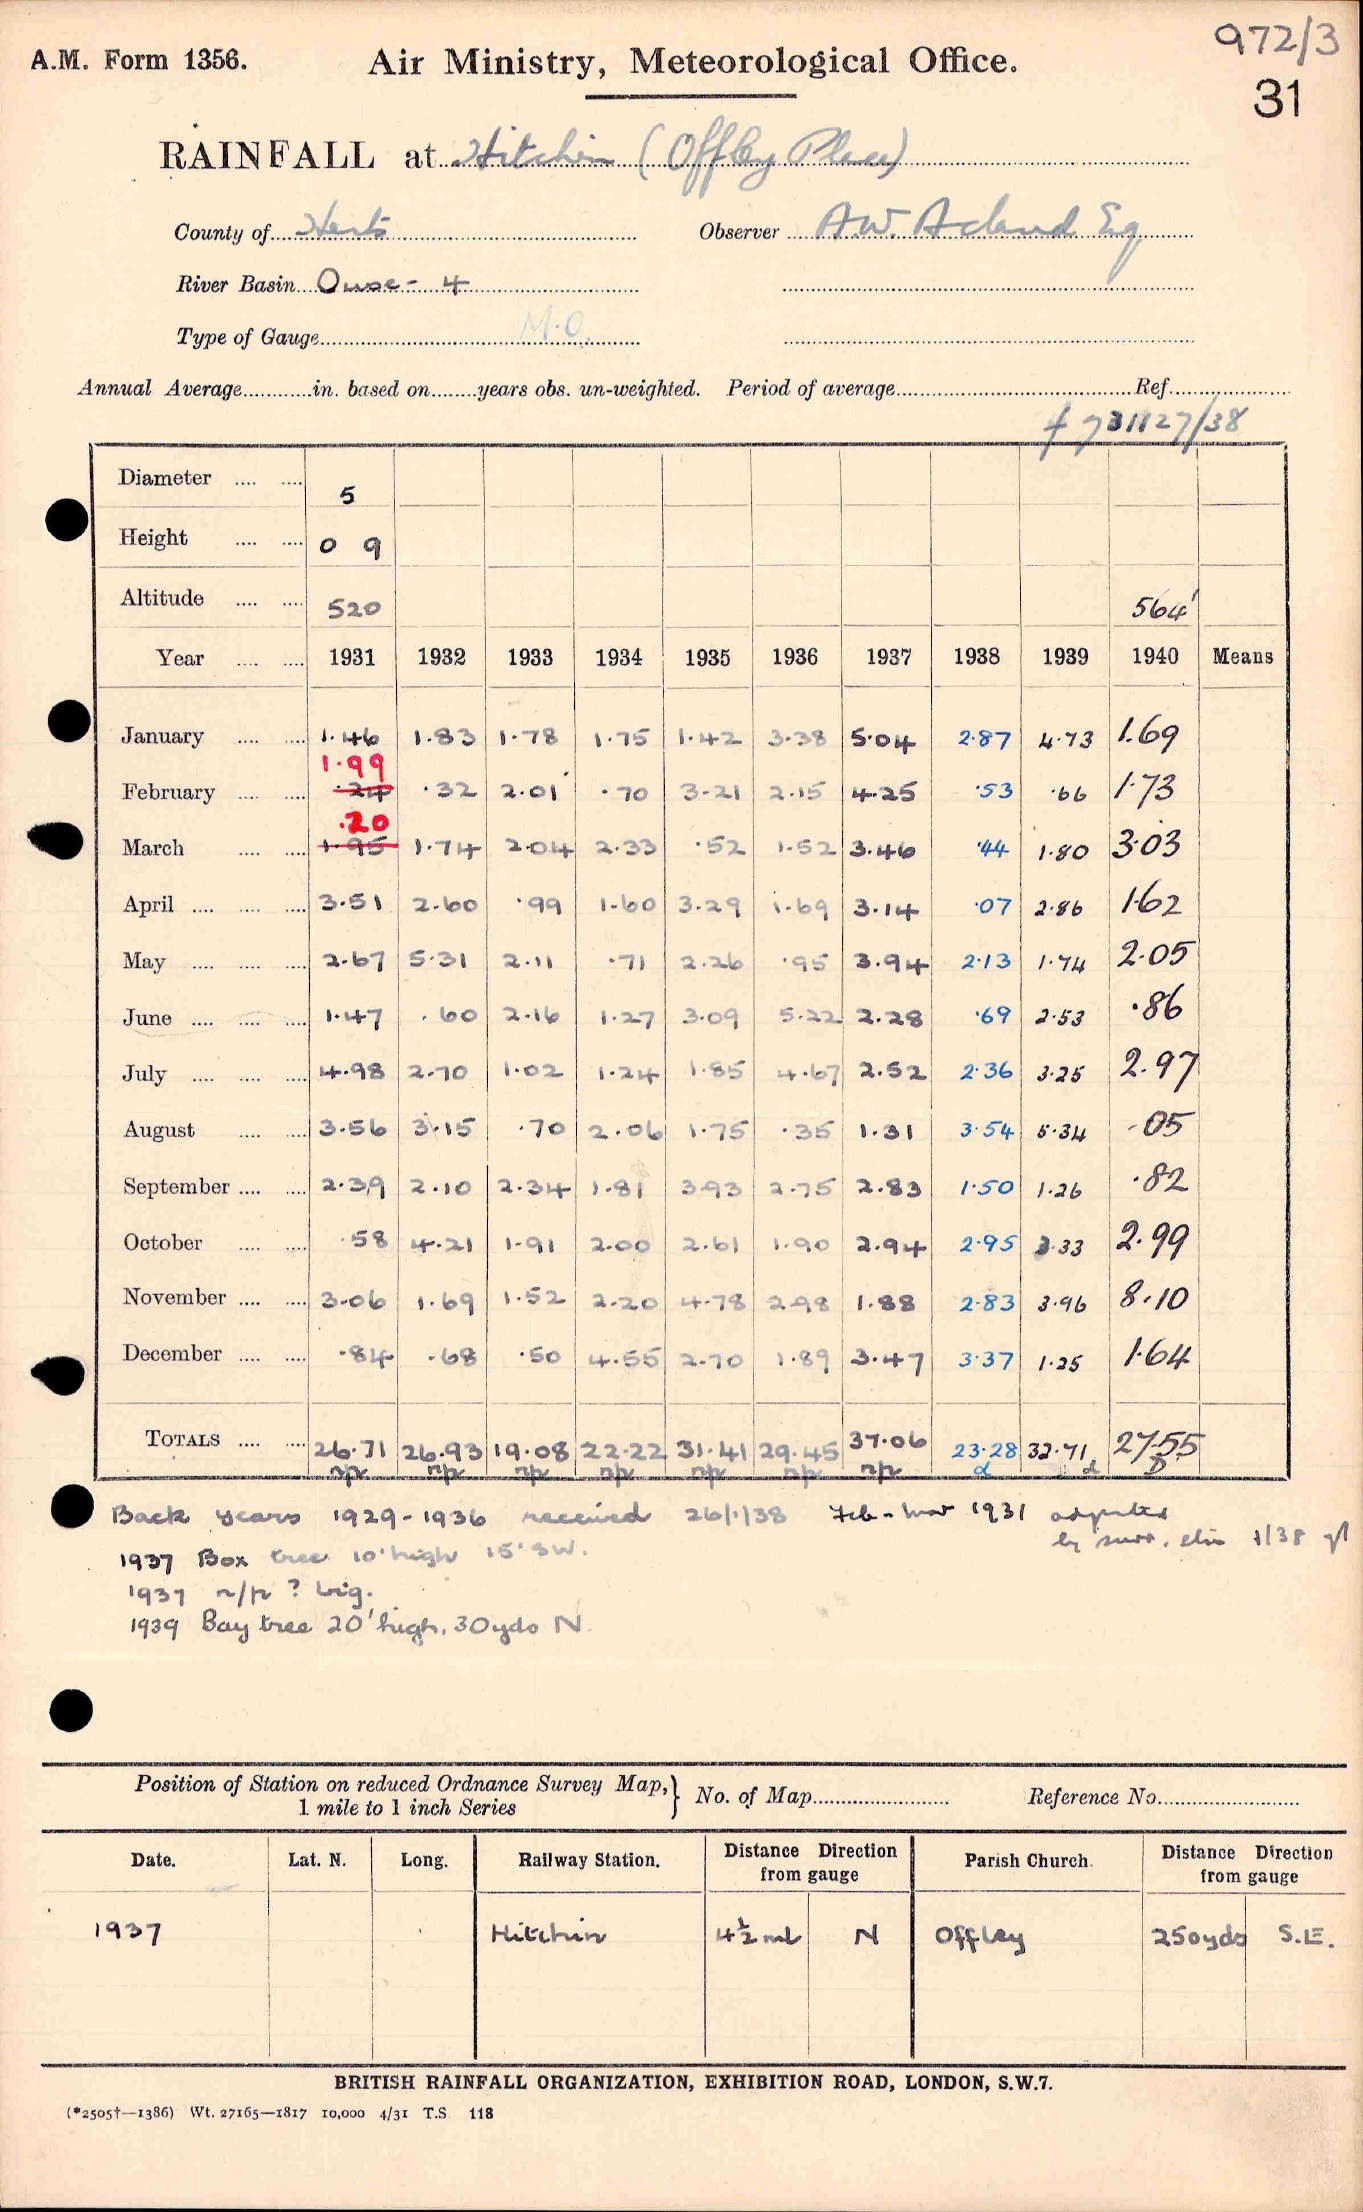 972/3
A.M. Form 1356. Air Ministry, Meteorological Office.
31
RAINFALL at Hitchin (Offley Place)
County of Herts Observer A.W. Acland Esq
River Basin Ouse - 4
Type of Gauge M.O.
Annual Average in. based on years obs. un-weighted. Period of average Ref.
731127/38
Diameter 5
Height 0 9
Altitude 520 564'
Year 1931 1932 1933 1934 1935 1936 1937 1938 1939 1940 Means
January 1.46 1.83 1.78 1.75 1.42 3.38 5.04 2.87 4.73 1.69
1.99
February .24 .32 2.01 .70 3.21 2.15 4.25 .53 .66 1.73
.20
March 1.95 1.74 2.04 2.33 .52 1.52 3.46 .44 1.80 3.03
April 3.51 2.60 .99 1.60 3.29 1.69 3.14 .07 2.86 1.62
May 2.67 5.31 2.11 .71 2.26 .95 3.94 2.13 1.74 2.05
June 1.47 .60 2.16 1.27 3.09 5.22 2.28 .69 2.53 .86
July 4.98 2.70 1.02 1.24 1.85 4.67 2.52 2.36 3.25 2.97
August 3.56 3.15 .70 2.06 1.75 .35 1.31 3.54 5.34 .05
September 2.39 2.10 2.34 1.81 3.93 2.75 2.83 1.50 1.26 .82
October .58 4.21 1.91 2.00 2.61 1.90 2.94 2.95 3.33 2.99
November 3.06 1.69 1.52 2.20 4.78 2.98 1.88 2.83 3.96 8.10
December .84 .68 .50 4.55 2.70 1.89 3.47 3.37 1.25 1.64
TOTALS 26.71 26.93 19.08 22.22 31.41 29.45 37.06 23.28 32.71 27.55
n/p n/p n/p n/p n/p n/p n/p d d D
Back years 1929-1936 received 26/1/38 Feb - Mar 1931 adjusted
by surr. stns 1/38
1937 Box tree 10' high 15' SW.
1937 n/p ? big.
1939 Bay tree 20' high, 30yds N
Position of Station on reduced Ordnance Survey Map, 1 mile to 1 inch Series } No. of Map Reference No.
Date. Lat. N. Long. Railway Station. Distance Direction from gauge Parish Church. Distance Direction from gauge
1937 Hitchin 4½ ml N Offley 250yds S.E.
BRITISH RAINFALL ORGANIZATION, EXHIBITION ROAD, LONDON, S.W.7.
(*2505†—1386) Wt. 27165—1817 10,000 4/31 T.S. 118